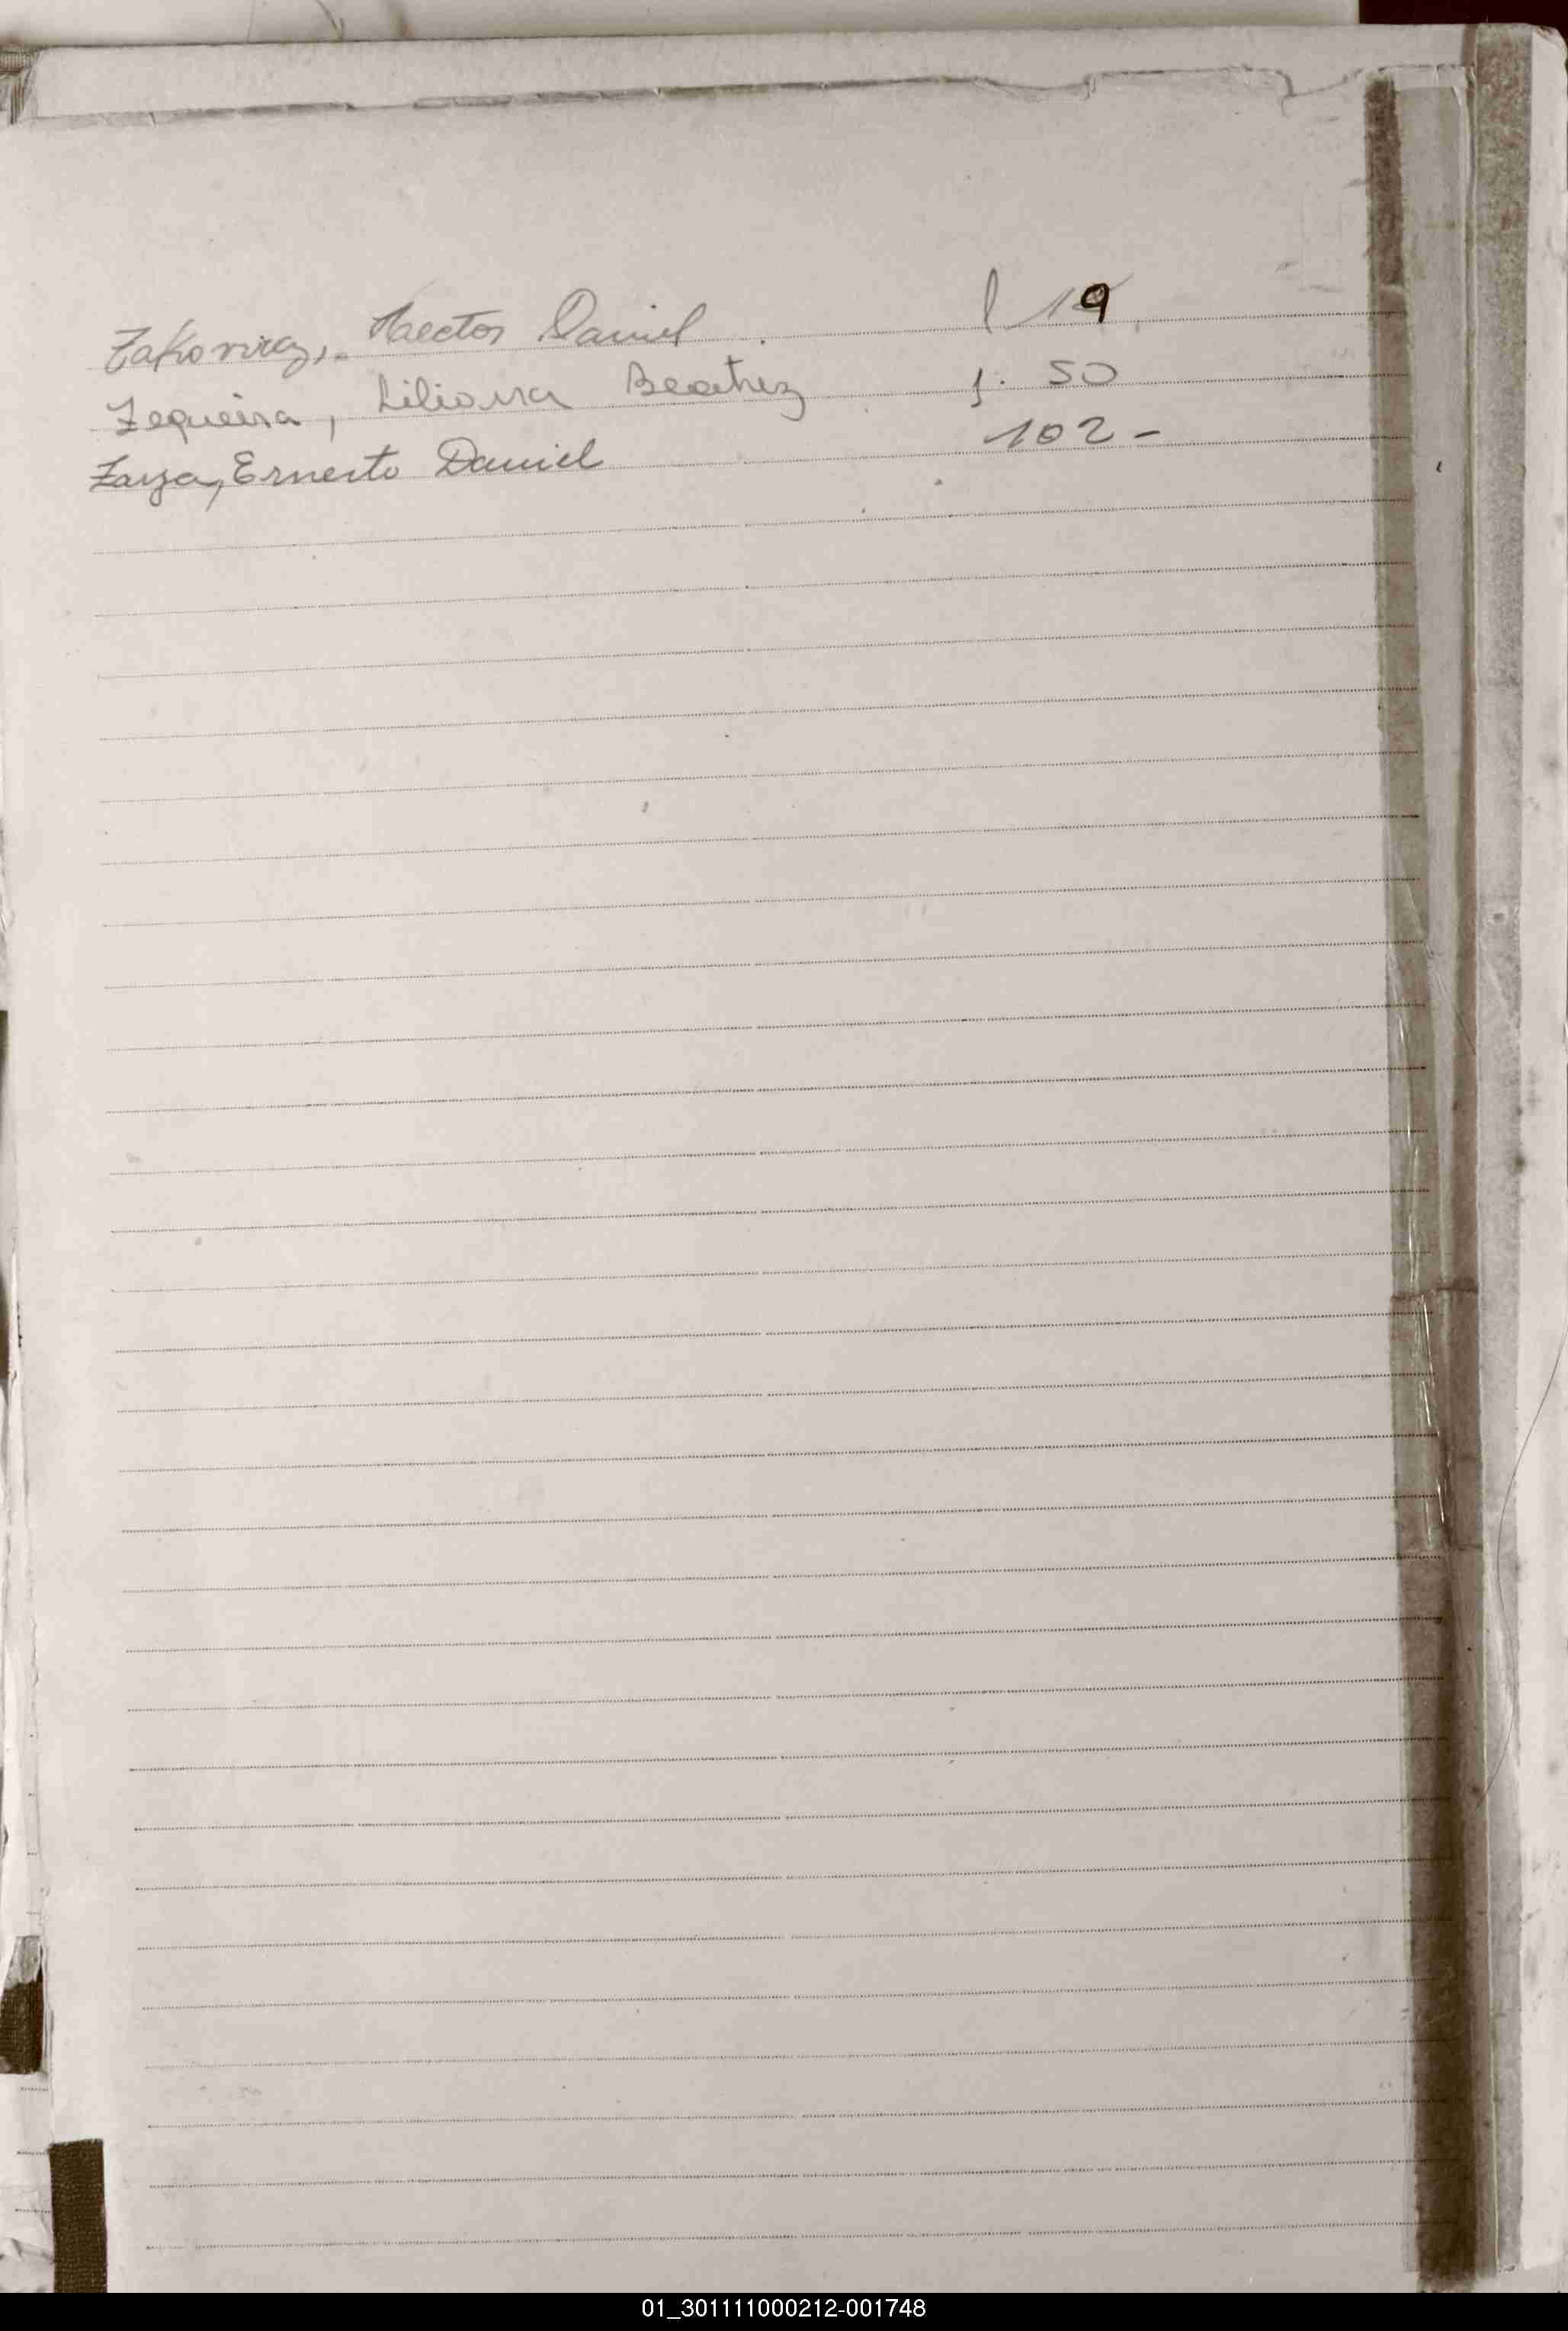 Zakovicz, Hector Daniel . f 19
Zequeira, Liliana Beatriz f. 50
Zaya, Ernesto Daniel 102 -
01_301111000212-001748